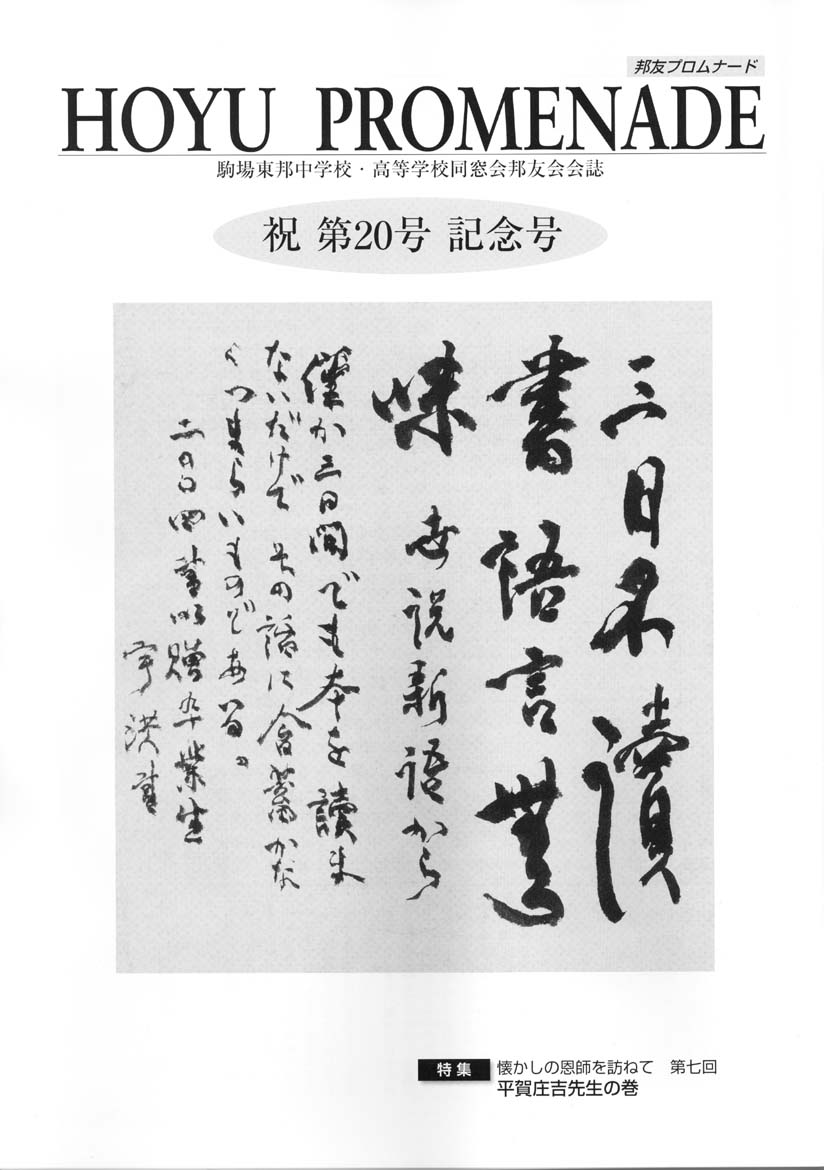 邦友プロムナード
HOYU PROMENADE
駒場東邦中学校・高等学校同窓会邦友会会誌
祝 第20号 記念号
三日不讀
書語言無
味 世説新語から
僅か三日間でも本を讀ま
ないだけで その話に含蓄がな
くつまらいものである。
二〇〇四 書以贈卒業生
宇洪書
特集 懐かしの恩師を訪ねて 第七回
平賀庄吉先生の巻